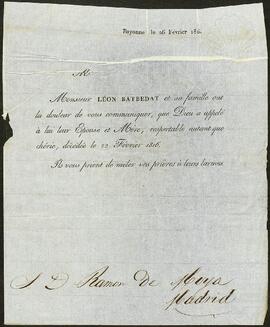 Bayonne le 26 Février 18
M
Monsieur LÉON BATBEDAT et sa famille ont
la douleur de vous communiquer, que Dieu a appelé
à lui leur Epouse et Mère, respectable autant que
chérie, décédée le 22 Février
Ils vous prient de mêler vos prières à leurs larmes
S D Ramon De Moya
Madrid